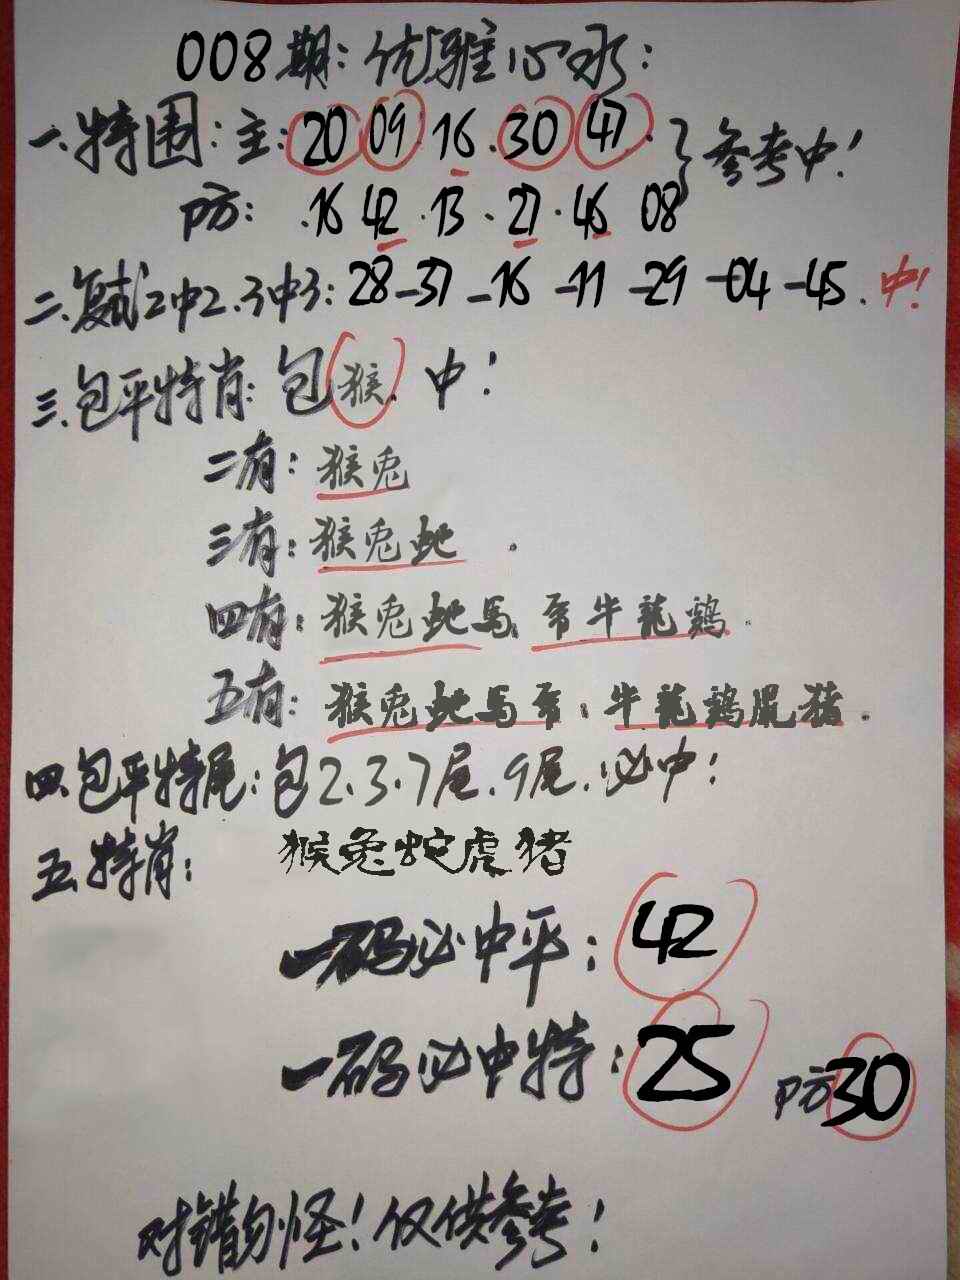 008期:优雅心水:
一.特围:主:20 09 16.30 47.}参考中!
防: .16 42.13.27.46 08
二.复式2中2.3中3:28-37-16-11-29-04-45.中!
三.包平特肖:包猴.中!
二有:猴兔
三有:猴兔蛇.
四有:猴兔蛇馬.帝牛龍鷄.
五有:猴兔蛇馬帝:牛龍鷄鼠猪.
四.包平特尾:包2.3.7尾.9尾.必中!
五.特肖:猴兔蛇虎猪
一码必中平:42
一码必中特:25 防30
对错勿怪!仅供参考!